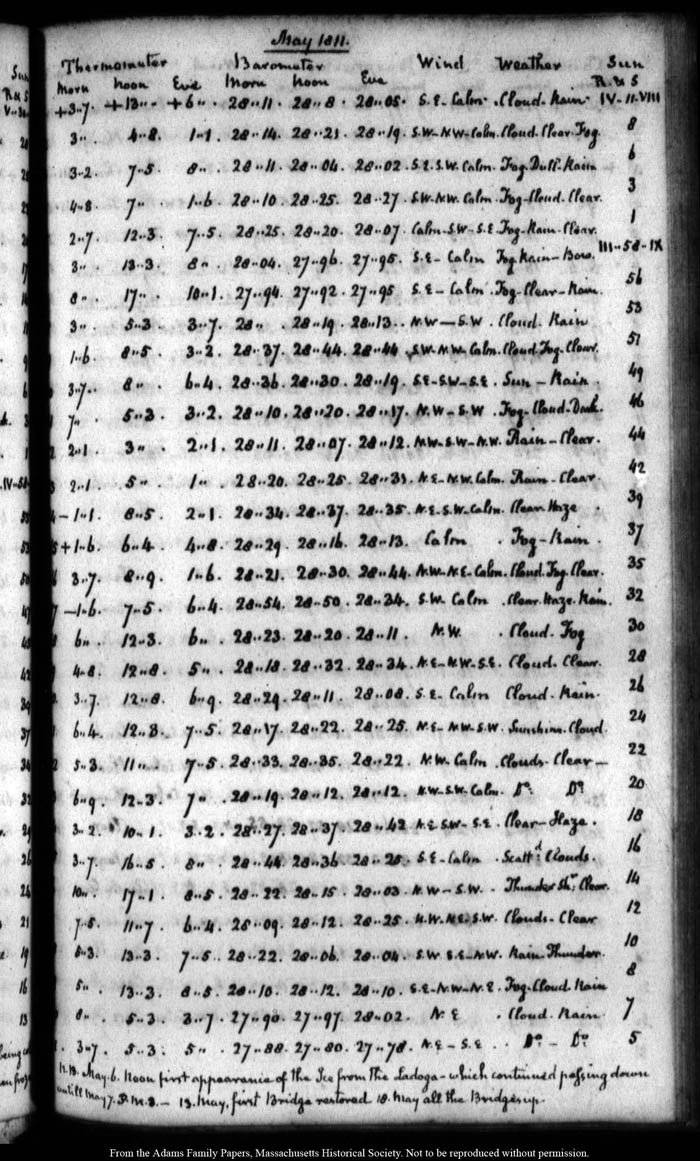 May 1811.
Thermometer Barometer Wind Weather Sun
Morn Noon Eve Morn Noon Eve R. & S
+3..7. +13.. +6.. 28..11. 28..8. 28..05. S.E-Calm. Cloud. Rain. IV-11-VIII
3.. 4..8. 1..1 28..14. 28..21. 28..19. S.W-N.W-Calm. Cloud. Clear. Fog. 8
3..2. 7..5 8.. 28..11. 28..04. 28..02. S.E. S.W. Calm. Fog. Dull. Rain 6
4..8 7.. 1..6 28..10. 28..25. 28..27. S.W. N.W. Calm. Fog-Cloud. Clear. 3
2..7 12..3. 7..5 28..25. 28..20. 28..07. Calm-S.W-S.E. Fog-Rain-Clear. 1
3.. 13..3. 8.. 28..04. 27..96. 27..95. S.E-Calm Fog Rain- III-58-IX
8.. 17.. 10..1 27..94. 27..92. 27..95 S.E-Calm. Fog-Clear-Rain. 56
3.. 5..3 3..7. 28.. 28..19. 28..13. N.W-S.W. Cloud. Rain 53
1..6. 8..5 3..2. 28..37. 28..44. 28..44 S.W-N.W-Calm. Cloud. Fog. Clear. 51
3..7. 8.. 6..4. 28..36. 28..30. 28..19. S.E-S.W-S.E. Sun-Rain. 49
7.. 5..3. 3..2. 28..10. 28..20. 28..17. N.W-S.W. Fog-Cloud- 46
2..1. 3.. 2..1 28..11. 28..07. 28..12. N.W-S.W-N.W. Rain-Clear. 44
2..1. 5.. 1.. 28..20. 28..25. 28..31. N.E-N.W. Calm. Rain-Clear. 42
-1..1. 8..5 2..1 28..34. 28..37. 28..35. N.E-S.W-Calm. Clear. Haze. 39
+1..6. 6..4 4..8 28..29. 28..16. 28..13. Calm. Fog-Rain. 37
3..7. 8..9. 1..6 28..21. 28..30. 28..44. N.W-N.E-Calm. Cloud. Fog. Clear. 35
-1..6. 7..5 6..4. 28..54. 28..50. 28..34. S.W. Calm. Clear. Haze. Rain. 32
6.. 12..3. 6.. 28..23. 28..20. 28..11. N.W. Cloud. Fog 30
4..8. 12..8. 5.. 28..18. 28..32. 28..34. N.E-N.W-S.E. Cloud. Clear. 28
3..7. 12..8. 6..9. 28..29. 28..11. 28..08. S.E. Calm Cloud. Rain. 26
6..4. 12..3. 7..5. 28..17. 28..22. 28..25. N.E-N.W-S.W. Sunshine. Cloud. 24
5..3. 11.. 7..5. 28..33. 28..35. 28..22. N.W-Calm. Clouds. Clear- 22
6..9. 12..3. 7.. 28..19. 28..12. 28..12. N.W-S.W-Calm. Do. Do. 20
3..2. 10..1. 3..2. 28..27. 28..37. 28..42 N.E. S.W-S.E. Clear-Haze. 18
3..7. 16..5. 8.. 28..44. 28..36 28..25. S.E-Calm. Scattd. Clouds. 16
10.. 17..1 8..5 28..22. 28..15. 28..03. N.W-S.W. Thunder Shr. Clear. 14
7..5. 11..7 6..4. 28..09. 28..12. 28..25. N.W. N.E. S.W. Clouds-Clear 12
5..3. 13..3. 7..5. 28..22. 28..06. 28..04. S.W. S.E-N.W. Rain. Thunder. 10
5.. 13..3. 8..5. 28..10. 28..12. 28..10. S.E-N.W-N.E. Fog. Cloud. Rain 8
8.. 5..3. 3..7 27..90. 27..97. 28..02. N.E. Cloud. Rain. 7
3..7. 5..3. 5.. 27..88. 27..80. 27..78. N.E-S.E. Do-Do 5
N.B. May. 6. Noon first appearance of the Ice from the Ladoga-which continued passing down
untill May 7. P.M. 3.- 13. May, first Bridge restored 18. May all the Bridges up.
From the Adams Family Papers, Massachusetts Historical Society. Not to be reproduced without permission.